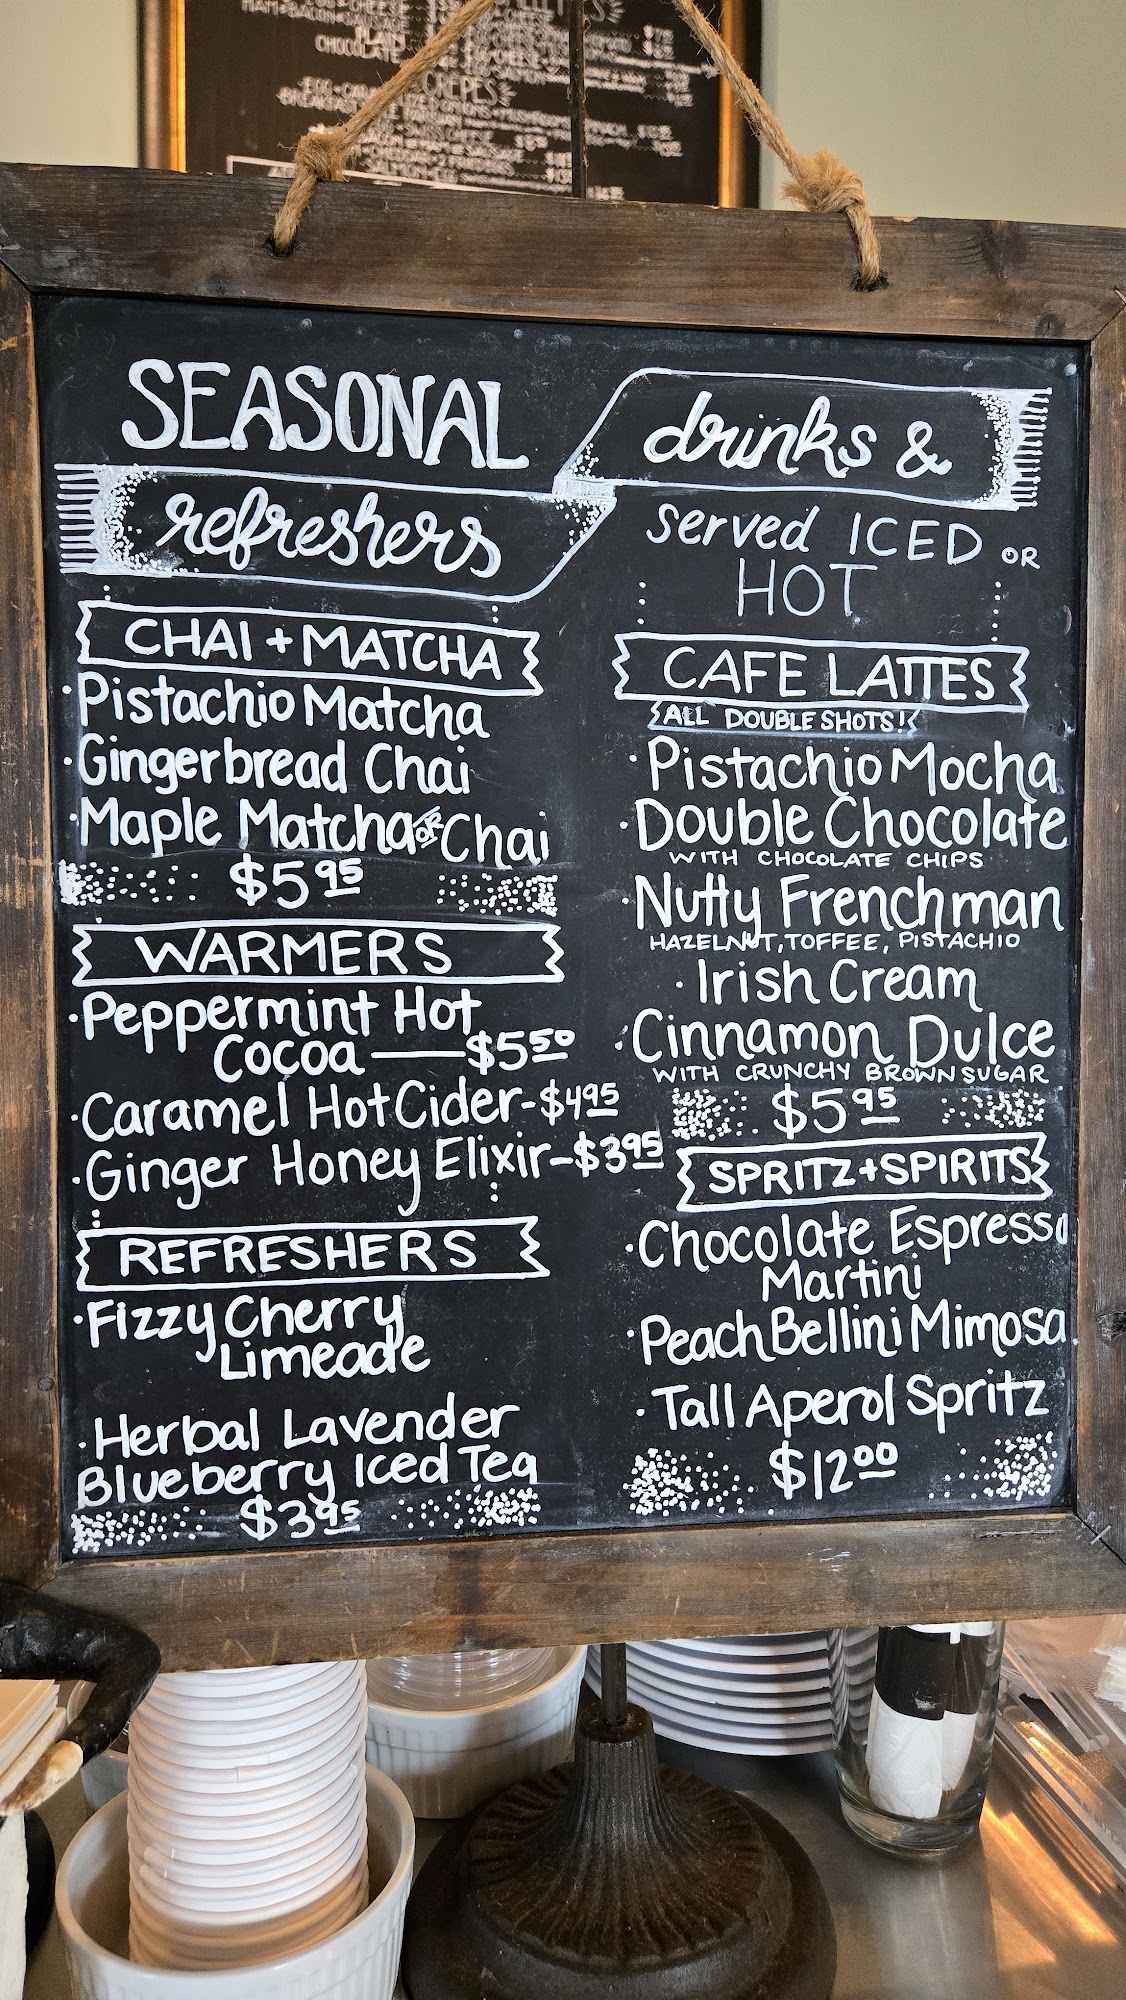 HAM+BACON+SAUSAGE
PLAIN
CHOCOLATE
CREPES
SEASONAL
drinks &
refreshers
served ICED OR
HOT
CHAI + MATCHA
·Pistachio Matcha
·Gingerbread Chai
·Maple Matcha OR Chai
$5 95
WARMERS
·Peppermint Hot
Cocoa — $5 50
·Caramel Hot Cider - $4 95
·Ginger Honey Elixir - $3 95
REFRESHERS
·Fizzy Cherry
Limeade
·Herbal Lavender
Blueberry Iced Tea
$3 95
CAFE LATTES
ALL DOUBLE SHOTS!
·Pistachio Mocha
·Double Chocolate
WITH CHOCOLATE CHIPS
·Nutty Frenchman
HAZELNUT, TOFFEE, PISTACHIO
·Irish Cream
·Cinnamon Dulce
WITH CRUNCHY BROWN SUGAR
$5 95
SPRITZ + SPIRITS
·Chocolate Espresso
Martini
·Peach Bellini Mimosa
·Tall Aperol Spritz
$12 00